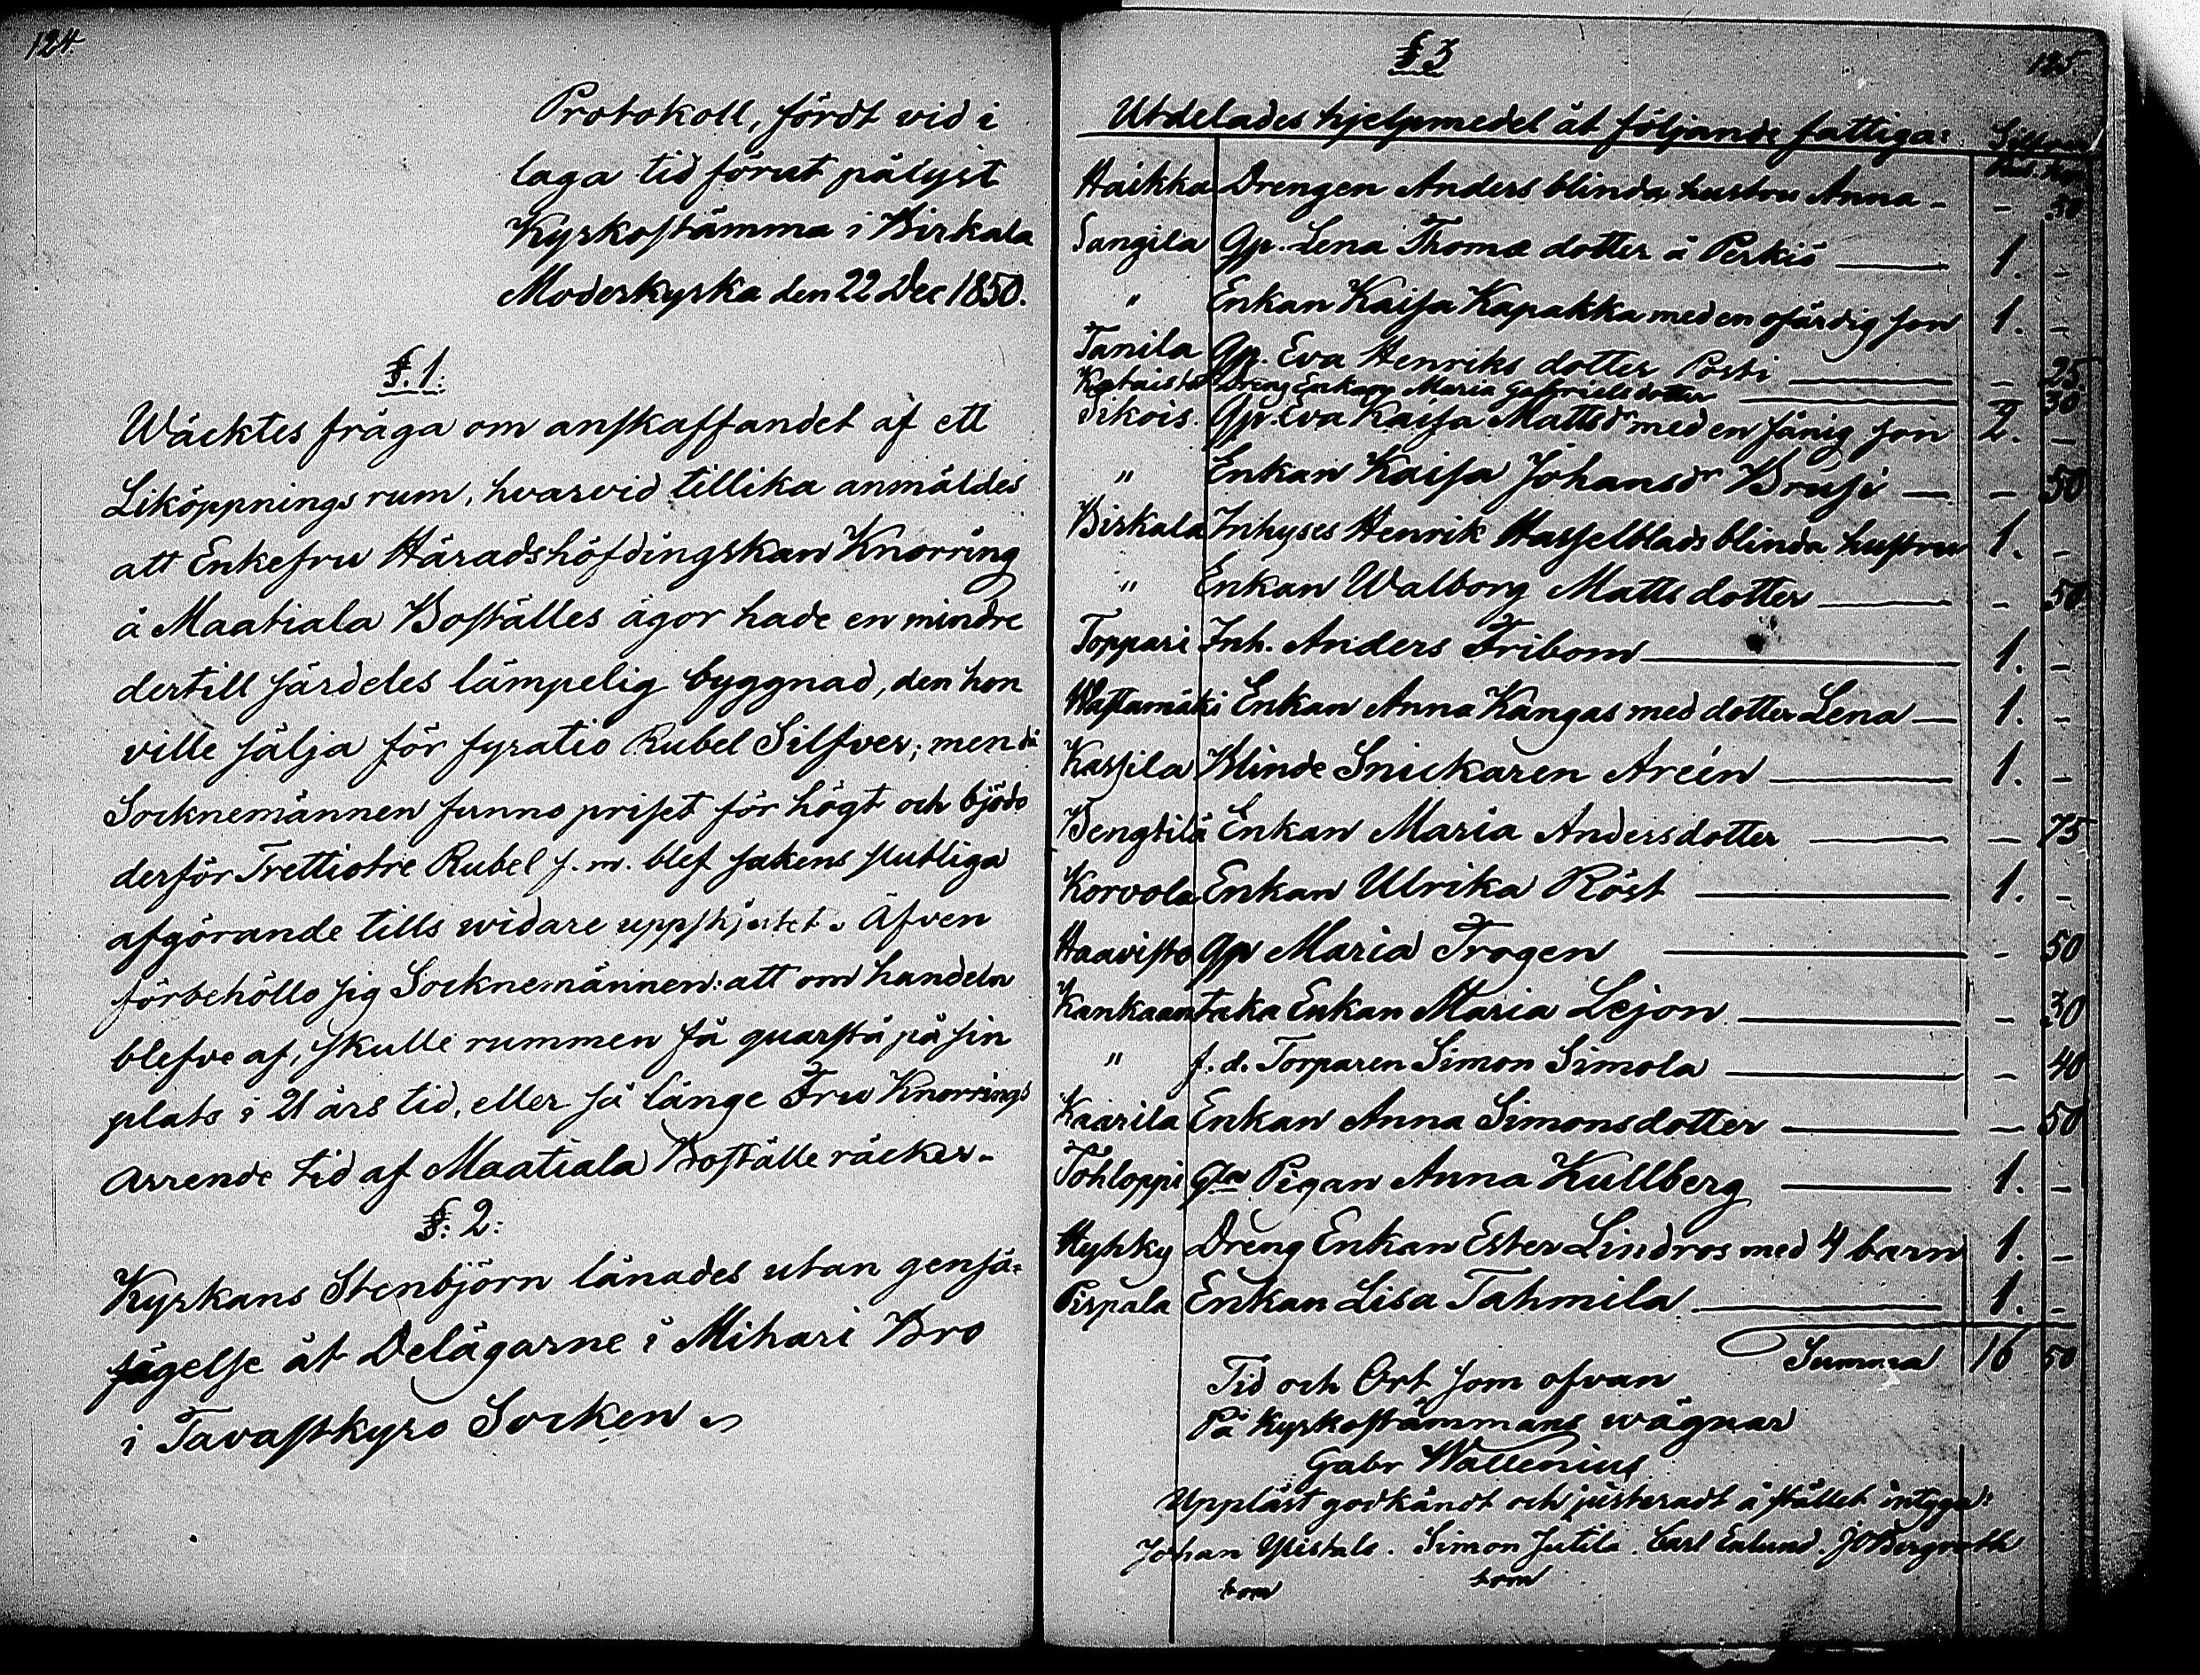 124.
Protokoll, fördt vid i
laga tid förut pålyst
Kyrkostämma i Birkala
Moderkyrka den 22 Dec 1850.
§. 1:
Wäcktes fråga om anskaffandet af ett
Liköppnings rum, hvarvid tillika anmäldes
att Enkefru Häradshöfdingskan Knorring
å Maatiala Boställes ägor hade en mindre
dertill särdeles lämpelig byggnad, den hon
ville sälja för fyratio Rubel Silfver; men då
Socknemännen funno priset för högt och bjödo
derför Trettiotre Rubel s.m. blef sakens slutliga
afgörande tills widare uppskjutet. Äfven
förbehöllo sig Socknemännen: att om handeln
blefve af, skulle rummen få quarstå på sin
plats i 21 års tid, eller så länge Fru Knorrings
arrende tid af Maatiala Boställe räcker.
§. 2:
Kyrkans Stenbjörn lånades utan gensä-
gelse åt Delägarne i Mihari Bro
i Tavastkyro Socken.
125.
§ 3
Utdelades hjelpmedel åt följande fattiga: Silfver
Rub. Kop
Haikka Drengen Anders blinda hustru Anna - - 50
Sangila Gp. Lena Thomæ dotter å Perkiö 1. -
" Enkan Kaisa Kapakka med en ofärdig son 1. -
Tanila Gp. Eva Henriks dotter Posti - 25
Kataisto Dreng Enkan Maria Gabrielsdotter - 30
Tikois. Gp. Eva Kaisa Mattsdr med en fånig son 2. -
" Enkan Kaisa Johansdr Brusi - 50
Birkala Inhyses Henrik Hasselblads blinda hustru 1. -
" Enkan Walborg Matts dotter - 50
Toppari Inh. Anders Fribom 1. -
Wastamäki Enkan Anna Kangas med dotter Lena 1. -
Kassila Blinde Snickaren Arén 1. -
Bengtilä Enkan Maria Andersdotter - 75
Korvola Enkan Ulrika Röst 1. -
Haavisto Gp Maria Trogen - 50
Kankaantaka Enkan Maria Lejon - 30
" f.d. Torparen Simon Simola - 40
Kaarila Enkan Anna Simonsdotter - 50
Tohloppi Gla Pigan Anna Kullberg 1. -
Hyhky Dreng Enkan Ester Lindros med 4 barn 1. -
Pispala Enkan Lisa Tahmila 1. -
Summa 16 50
Tid och Ort som ofvan
På Kyrkostämmans wägnar
Gabr Wallenius
Uppläst godkändt och justeradt å stället intyga:
Johan Ylistalo. Simon Jutila. Carl Enlund. J O Bergroth
bom bom